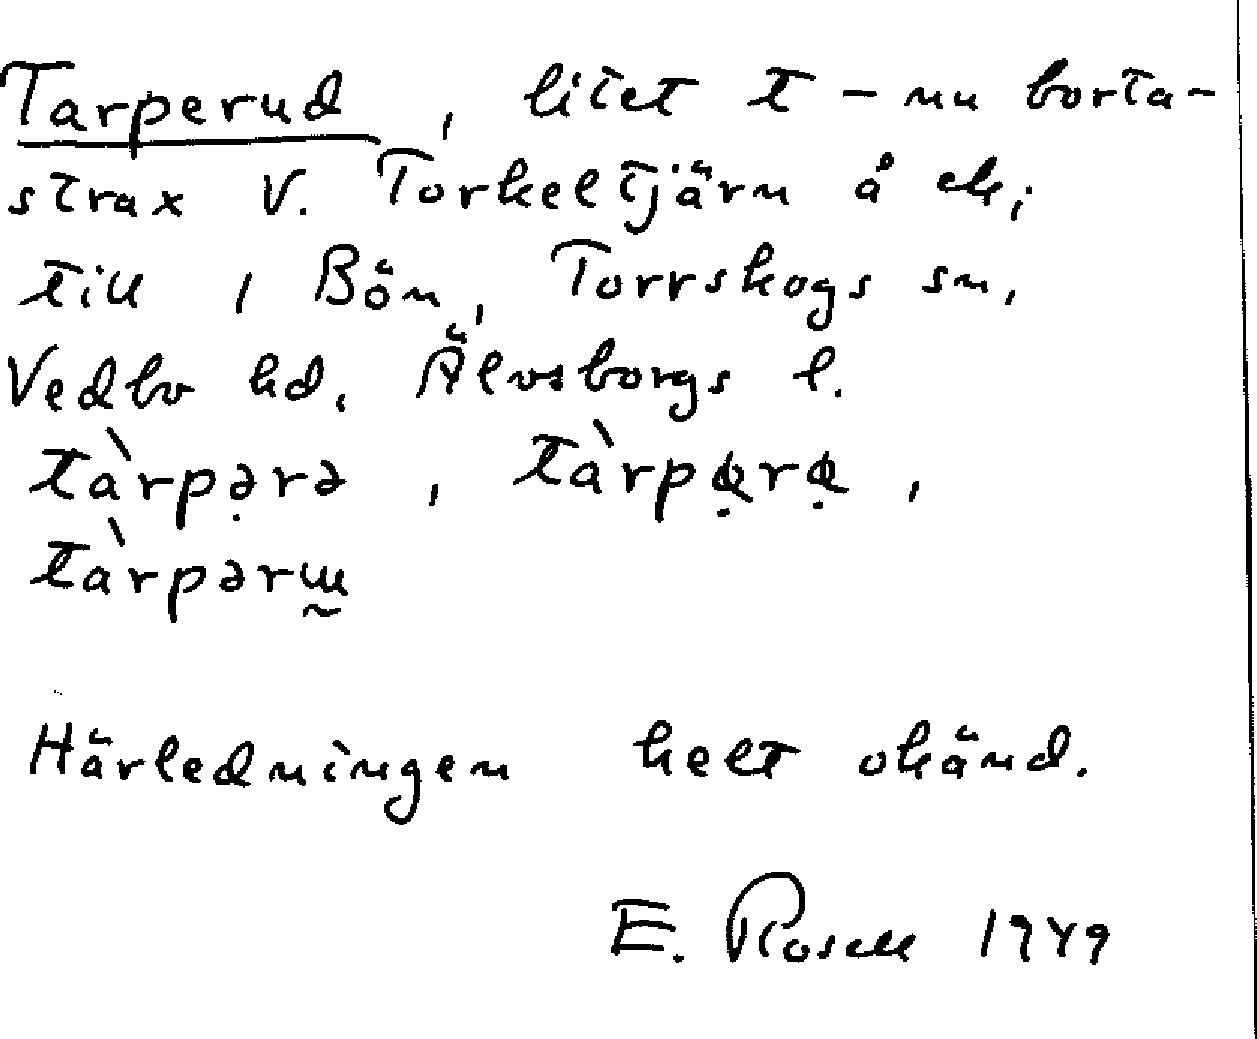 Tarperud, litet t – nu borta –
strax V. Torkeltjärn å ek,
till 1 Bön, Torrskogs sn,
Vedbo hd. Älvsborgs l.
tàrpə̣rə, tàrp
tàrpər
Härledningen helt okänd.
E. Rosell 1949